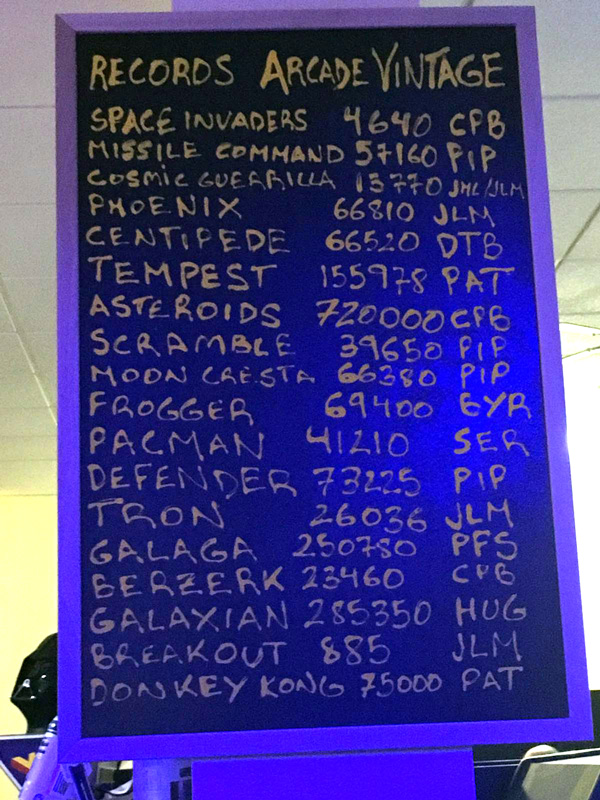 RECORDS ARCADE VINTAGE
SPACE INVADERS 4640 CPB
MISSILE COMMAND 57160 PIP
COSMIC GUERRILLA 13770 JMC/JLM
PHOENIX 66810 JLM
CENTIPEDE 66520 DTB
TEMPEST 155978 PAT
ASTEROIDS 720000 CPB
SCRAMBLE 39650 PIP
MOON CRESTA 66380 PIP
FROGGER 69400 GYR
PACMAN 41210 SER
DEFENDER 73225 PIP
TRON 26036 JLM
GALAGA 250780 PFS
BERZERK 23460 CPB
GALAXIAN 285350 HUG
BREAKOUT 885 JLM
DONKEY KONG 75000 PAT